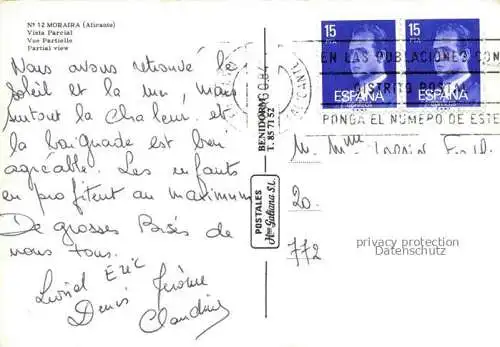 Nº 12 MORAIRA (Alicante)
Vista Parcial
Vue Partielle
Partial view
Nous avons retrouvé le
soleil et la mer, mais
surtout la chaleur. et
la baignade est bien
agréable. Les enfants
en profitent au maximum
De grosses Bises de
nous tous.
Lionel Eric
Denis Jérôme
Claudine
POSTALES
Hnos Galiana S.L.
BENIDORM
T. 85 71 52
15
PTA
ESPAÑA
15
PTA
ESPAÑA
EN LAS POBLACIONES CON
DISTRITO POSTAL
PONGA EL NUMERO DE ESTE
M. Mme
20.
772
privacy protection
Datenschutz